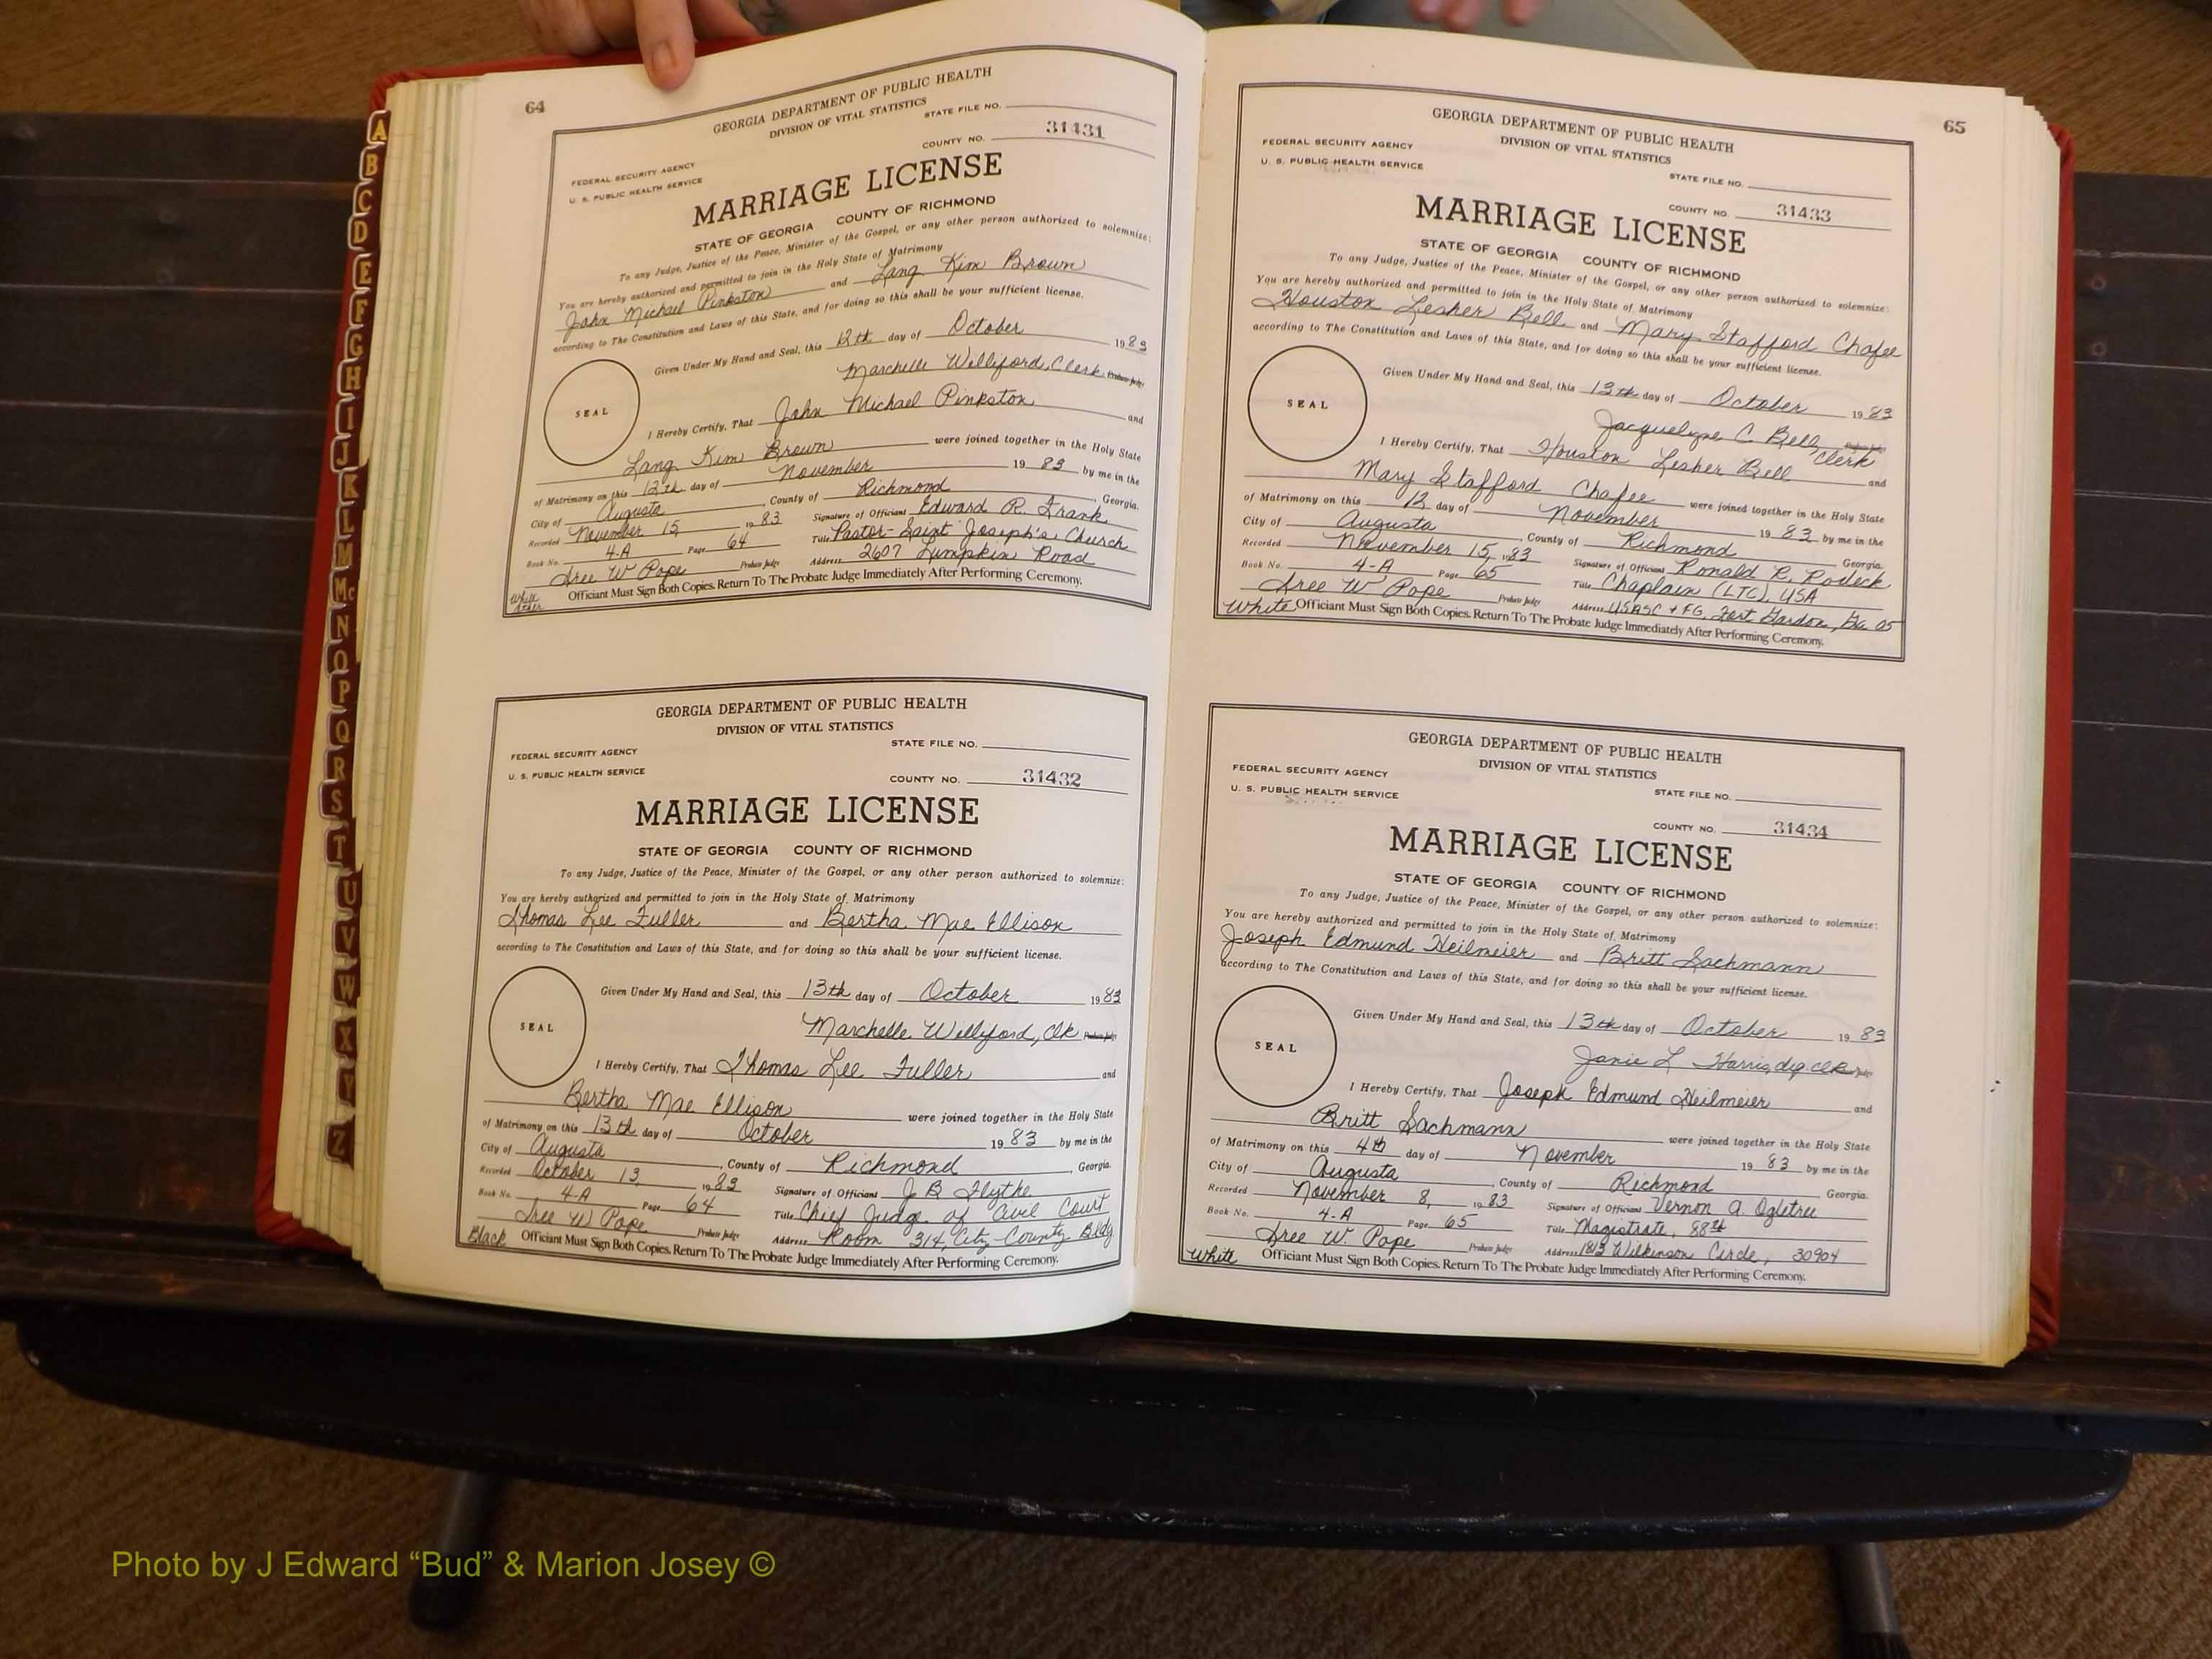 64
GEORGIA DEPARTMENT OF PUBLIC HEALTH
DIVISION OF VITAL STATISTICS
STATE FILE NO.
COUNTY NO. 31431
FEDERAL SECURITY AGENCY
U. S. PUBLIC HEALTH SERVICE
MARRIAGE LICENSE
STATE OF GEORGIA COUNTY OF RICHMOND
To any Judge, Justice of the Peace, Minister of the Gospel, or any other person authorized to solemnize:
You are hereby authorized and permitted to join in the Holy State of Matrimony
John Michael Pinkston and Lang Kim Brown
according to The Constitution and Laws of this State, and for doing so this shall be your sufficient license.
Given Under My Hand and Seal, this 12th day of October 1983
Marchelle Williford, Clerk Probate Judge
SEAL
I Hereby Certify, That John Michael Pinkston and
Lang Kim Brown were joined together in the Holy State
of Matrimony on this 12th day of November 1983 by me in the
City of Augusta, County of Richmond, Georgia.
Recorded November 15, 1983 Signature of Officiant Edward R. Frank
Book No. 4-A Page 64 Title Pastor-Saint Joseph's Church
Sree W Pope Probate Judge Address 2607 Lumpkin Road
White
Officiant Must Sign Both Copies. Return To The Probate Judge Immediately After Performing Ceremony.
GEORGIA DEPARTMENT OF PUBLIC HEALTH
DIVISION OF VITAL STATISTICS
FEDERAL SECURITY AGENCY
STATE FILE NO.
U. S. PUBLIC HEALTH SERVICE
COUNTY NO. 31432
MARRIAGE LICENSE
STATE OF GEORGIA COUNTY OF RICHMOND
To any Judge, Justice of the Peace, Minister of the Gospel, or any other person authorized to solemnize:
You are hereby authorized and permitted to join in the Holy State of Matrimony
Thomas Lee Fuller and Bertha Mae Ellison
according to The Constitution and Laws of this State, and for doing so this shall be your sufficient license.
Given Under My Hand and Seal, this 13th day of October 1983
Marchelle Williford, Clk Probate Judge
SEAL
I Hereby Certify, That Thomas Lee Fuller and
Bertha Mae Ellison were joined together in the Holy State
of Matrimony on this 13th day of October 1983 by me in the
City of Augusta, County of Richmond, Georgia.
Recorded October 13, 1983 Signature of Officiant J B Flythe
Book No. 4-A Page 64 Title Chief Judge of Civil Court
Sree W Pope Probate Judge Address Room 314, City-County Bldg
Black Officiant Must Sign Both Copies. Return To The Probate Judge Immediately After Performing Ceremony.
65
GEORGIA DEPARTMENT OF PUBLIC HEALTH
DIVISION OF VITAL STATISTICS
FEDERAL SECURITY AGENCY
U. S. PUBLIC HEALTH SERVICE
STATE FILE NO.
COUNTY NO. 31433
MARRIAGE LICENSE
STATE OF GEORGIA COUNTY OF RICHMOND
To any Judge, Justice of the Peace, Minister of the Gospel, or any other person authorized to solemnize:
You are hereby authorized and permitted to join in the Holy State of Matrimony
Houston Lesher Bell and Mary Stafford Chafee
according to The Constitution and Laws of this State, and for doing so this shall be your sufficient license.
Given Under My Hand and Seal, this 13th day of October 1983
Jacquelyne C. Bell, Clerk Probate Judge
SEAL
I Hereby Certify, That Houston Lesher Bell and
Mary Stafford Chafee were joined together in the Holy State
of Matrimony on this 12 day of November 1983 by me in the
City of Augusta, County of Richmond Georgia.
Recorded November 15, 1983 Signature of Officiant Ronald R. Rodeck
Book No. 4-A Page 65 Title Chaplain (LTC), USA
Sree W Pope Probate Judge Address USASC + FG, Fort Gordon, Ga 05
White Officiant Must Sign Both Copies. Return To The Probate Judge Immediately After Performing Ceremony.
GEORGIA DEPARTMENT OF PUBLIC HEALTH
DIVISION OF VITAL STATISTICS
FEDERAL SECURITY AGENCY
U. S. PUBLIC HEALTH SERVICE
STATE FILE NO.
COUNTY NO. 31434
MARRIAGE LICENSE
STATE OF GEORGIA COUNTY OF RICHMOND
To any Judge, Justice of the Peace, Minister of the Gospel, or any other person authorized to solemnize:
You are hereby authorized and permitted to join in the Holy State of Matrimony
Joseph Edmund Heilmeier and Britt Sachmann
according to The Constitution and Laws of this State, and for doing so this shall be your sufficient license.
Given Under My Hand and Seal, this 13th day of October 1983
Janie L Harris, dep clk Judge
SEAL
I Hereby Certify, That Joseph Edmund Heilmeier and
Britt Sachmann were joined together in the Holy State
of Matrimony on this 4th day of November 1983 by me in the
City of Augusta, County of Richmond Georgia.
Recorded November 8, 1983 Signature of Officiant Vernon A. Ogletree
Book No. 4-A Page 65 Title Magistrate, 88th
Sree W. Pope Probate Judge Address 1813 Wilkinson Circle, 30904
White Officiant Must Sign Both Copies. Return To The Probate Judge Immediately After Performing Ceremony.
A
B
C
D
E
F
G
H
I
J
K
L
M
Mc
N
O
P
Q
R
S
T
U
V
W
X
Y
Z
Photo by J Edward “Bud” & Marion Josey ©